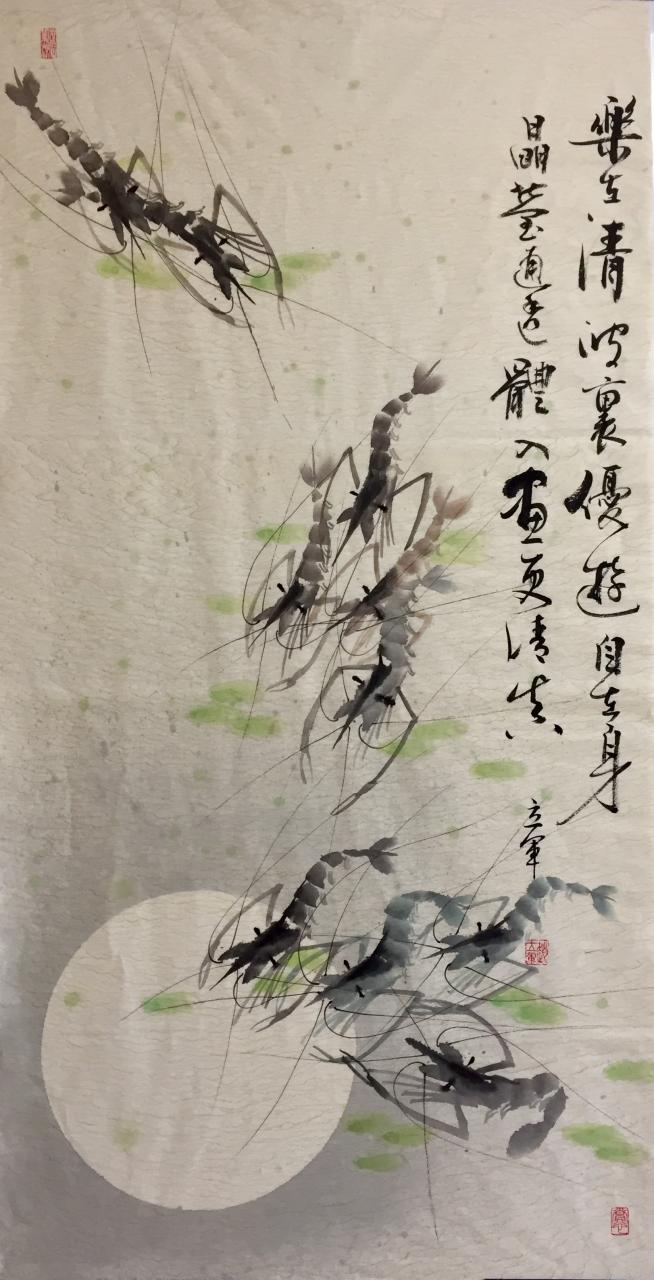 樂在清波裏優遊自在身
晶瑩通透體入畫更清真
立軍